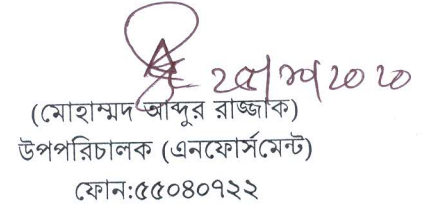 (মোহাম্মদ আব্দুর রাজ্জাক)
উপপরিচালক (এনফোর্সমেন্ট)
ফোন:৫৫০৪০৭২২